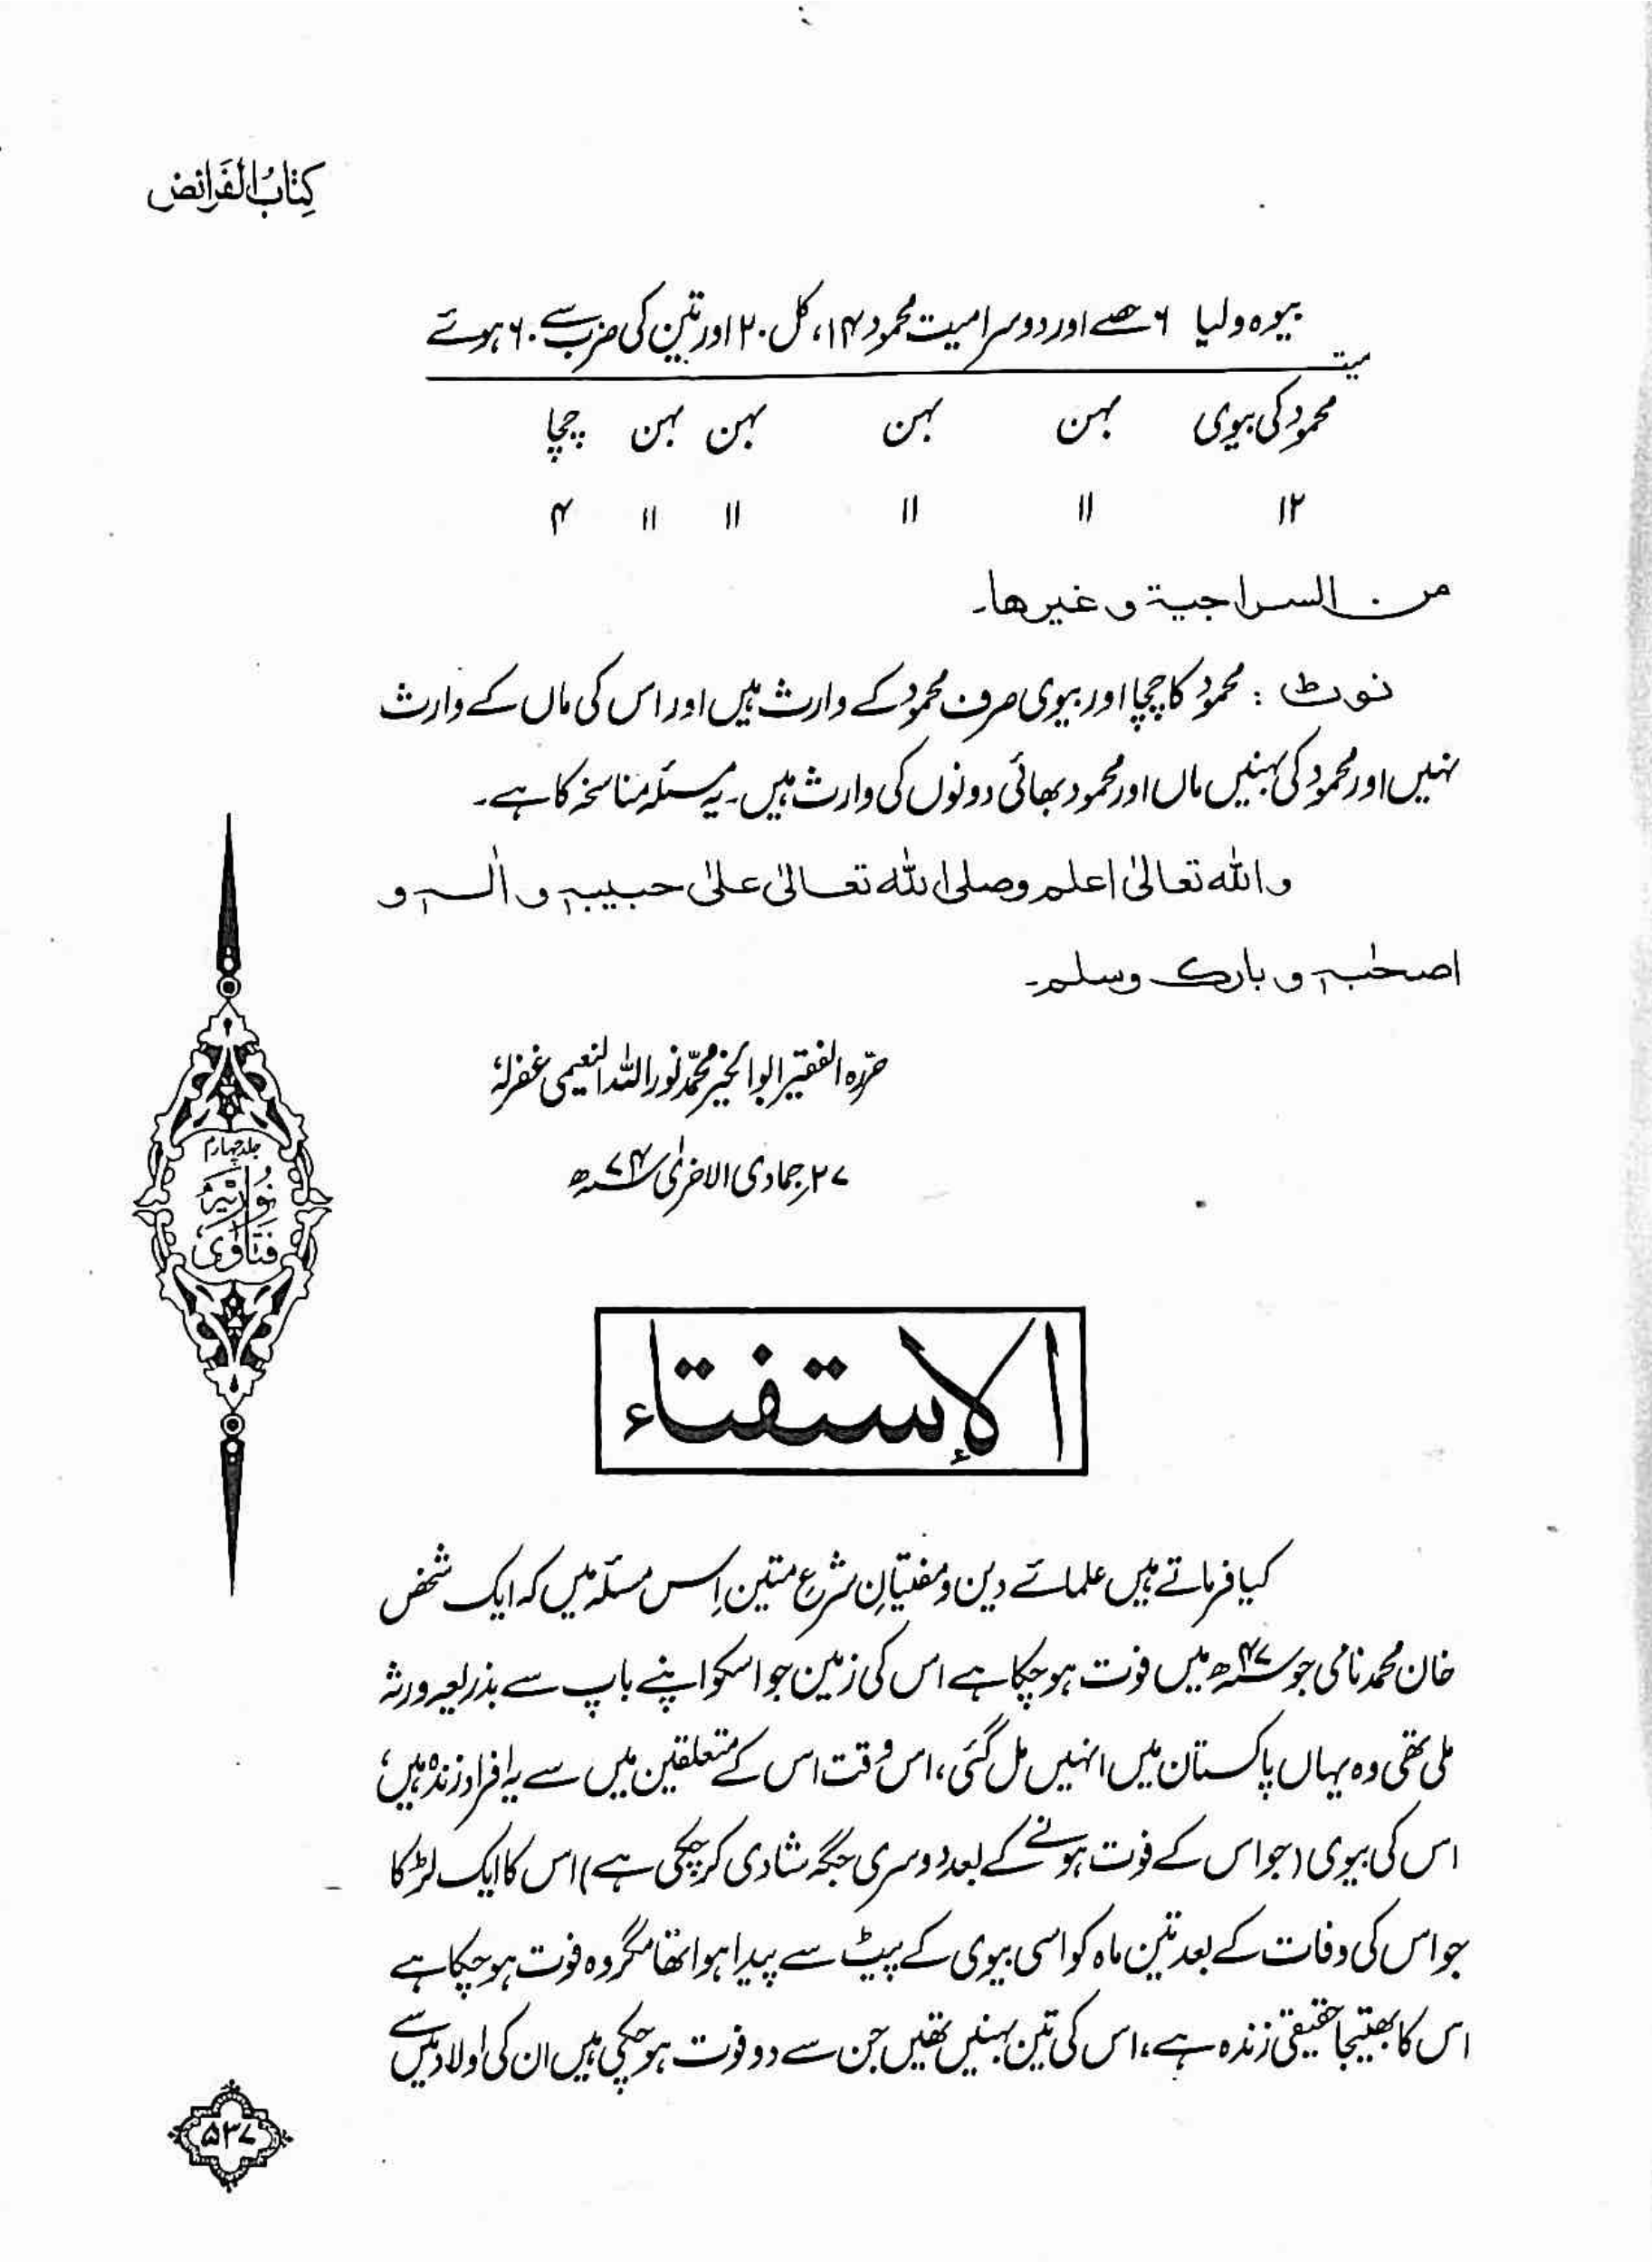 كِتَابُ الفَرائض
بیوہ ولیا ۶ حصے اور دوسرا میت محمود ۱۴، کل ۲۰ اور تین کی ضرب سے ۶۰ ہوئے
میت
محمود کی بیوی بہن بہن بہن بہن چچا
۱۲ ۱۱ ۱۱ ۱۱ ۱۱ ۴
من السراجية وغيرها۔
نوٹ : محمود کا چچا اور بیوی صرف محمود کے وارث ہیں اور اس کی ماں کے وارث
نہیں اور محمود کی بہنیں ماں اور محمود بھائی دونوں کی وارث ہیں۔ یہ مسئلہ مناسخہ کا ہے۔
واللہ تعالیٰ اعلم وصلی اللہ تعالیٰ علیٰ حبیبہٖ واٰلہٖ و
اصحٰبہٖ وبارک وسلم۔
حرّرہ الفقیر ابوالخیر محمّد نور اللہ النعیمی غفرلہٗ
۲۷ جمادی الاخریٰ ۷۴ھ
جلد چہارم
نُورِیَّہ
فتاوٰی
الاِستفتاء
کیا فرماتے ہیں علمائے دین و مفتیانِ شرعِ متین اِس مسئلہ میں کہ ایک شخص
خان محمد نامی جو ۴۷ھ میں فوت ہو چکا ہے اس کی زمین جو اسکو اپنے باپ سے بذریعہ ورثہ
ملی تھی وہ یہاں پاکستان میں انہیں مل گئی، اس وقت اس کے متعلقین میں سے یہ افراد زندہ ہیں؛
اس کی بیوی (جو اس کے فوت ہونے کے بعد دوسری جگہ شادی کر چکی ہے) اس کا ایک لڑکا
جو اس کی وفات کے بعد تین ماہ کو اسی بیوی کے پیٹ سے پیدا ہوا تھا مگر وہ فوت ہو چکا ہے
اس کا بھتیجا حقیقی زندہ ہے، اس کی تین بہنیں تھیں جن سے دو فوت ہو چکی ہیں ان کی اولاد میں سے
۵۳۷